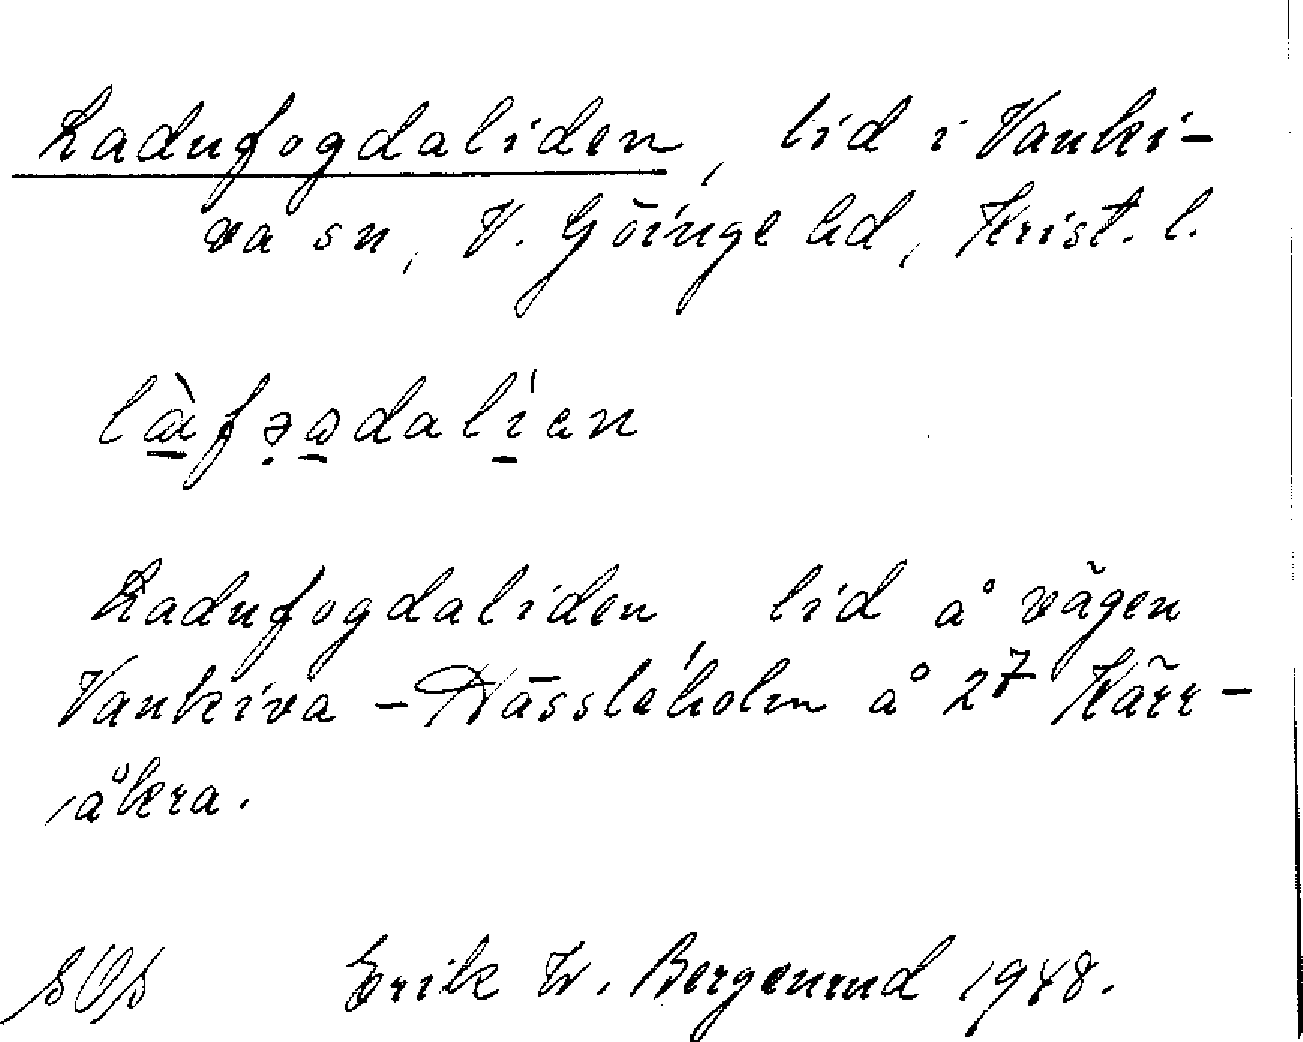 Ladufogdaliden, lid i Vanki-
va sn, V. Göinge hd, Krist. l.
Ladufogdaliden, lid å vägen
Vankiva - Hässleholm å 2⁷ Kärr-
åkra.
Erik W. Bergenrud 1948.